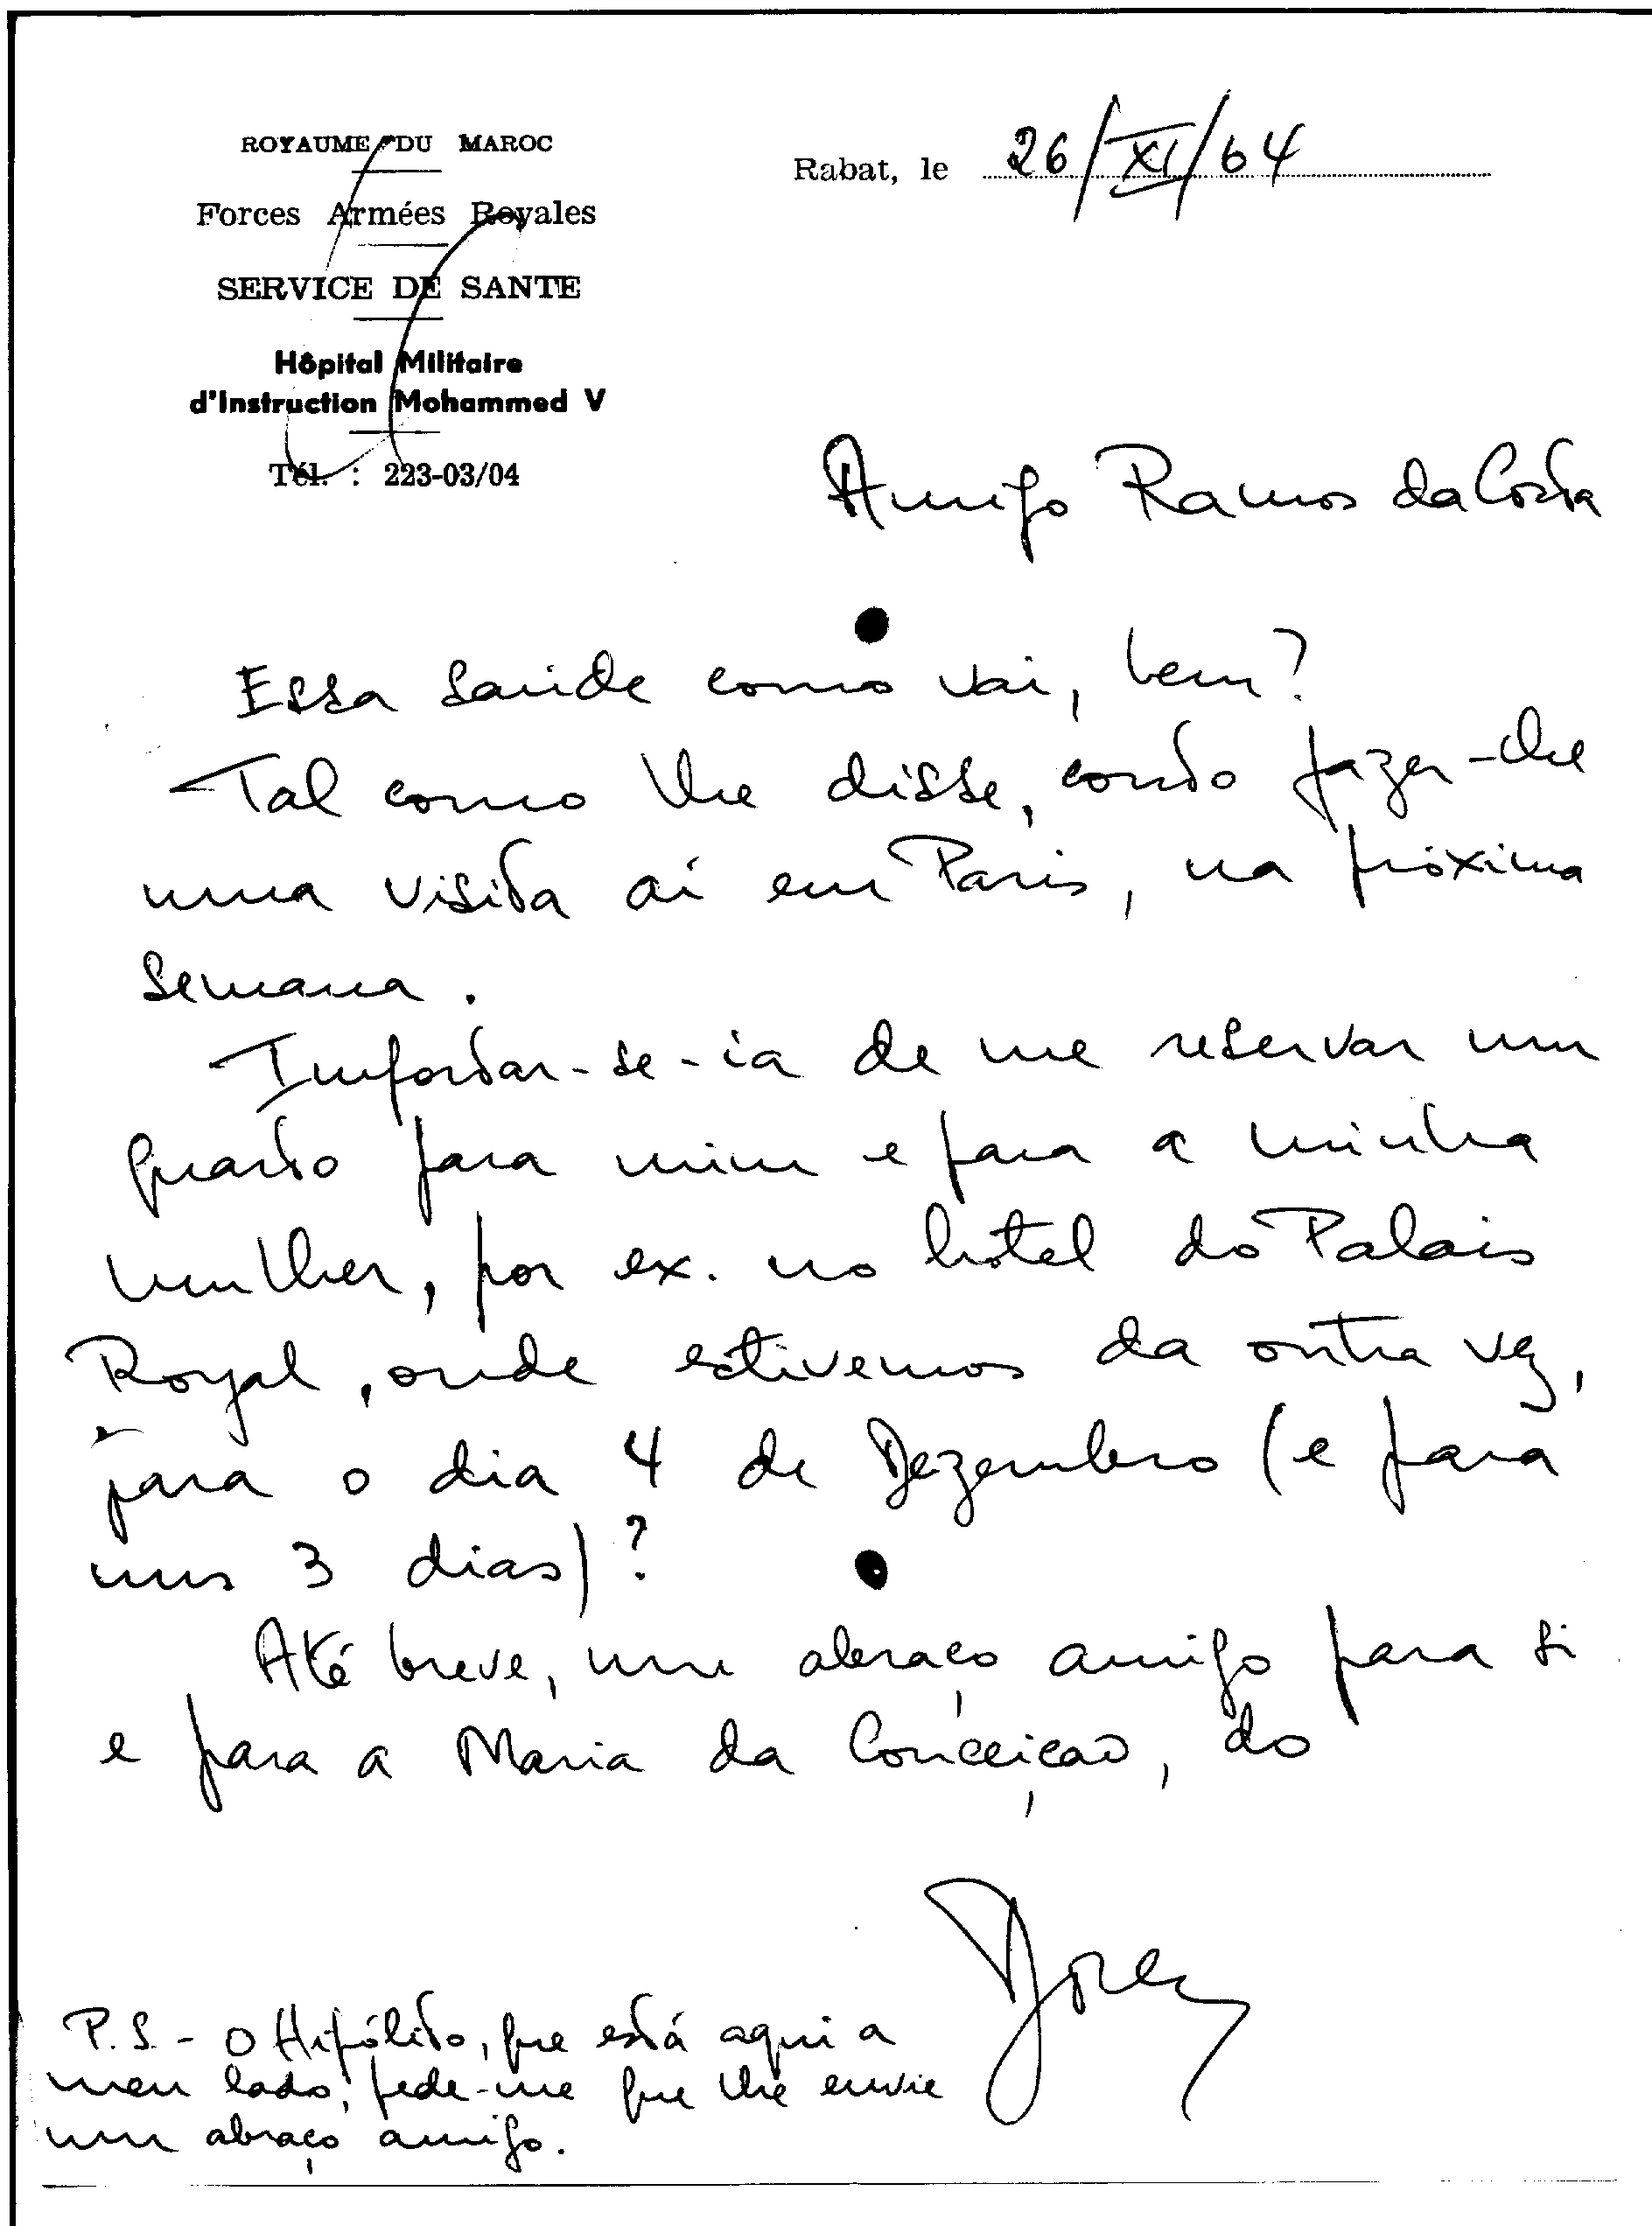 ROYAUME DU MAROC
Forces Armées Royales
SERVICE DE SANTE
Hôpital Militaire
d'Instruction Mohammed V
Tél. : 223-03/04
Rabat, le 26/XI/64
Amigo Ramos da Costa
Essa saúde como vai, bem?
Tal como lhe disse, conto fazer-lhe
uma visita aí em Paris, na próxima
semana.
Importar-se-ia de me reservar um
quarto para mim e para a minha
mulher, por ex. no hotel do Palais
Royal, onde estivemos da outra vez,
para o dia 4 de Dezembro (e para
uns 3 dias)?
Até breve, um abraço amigo para si
e para a Maria da Conceição, do
P.S. - O Hipólito, que está aqui a
meu lado, pede-me que lhe envie
um abraço amigo.